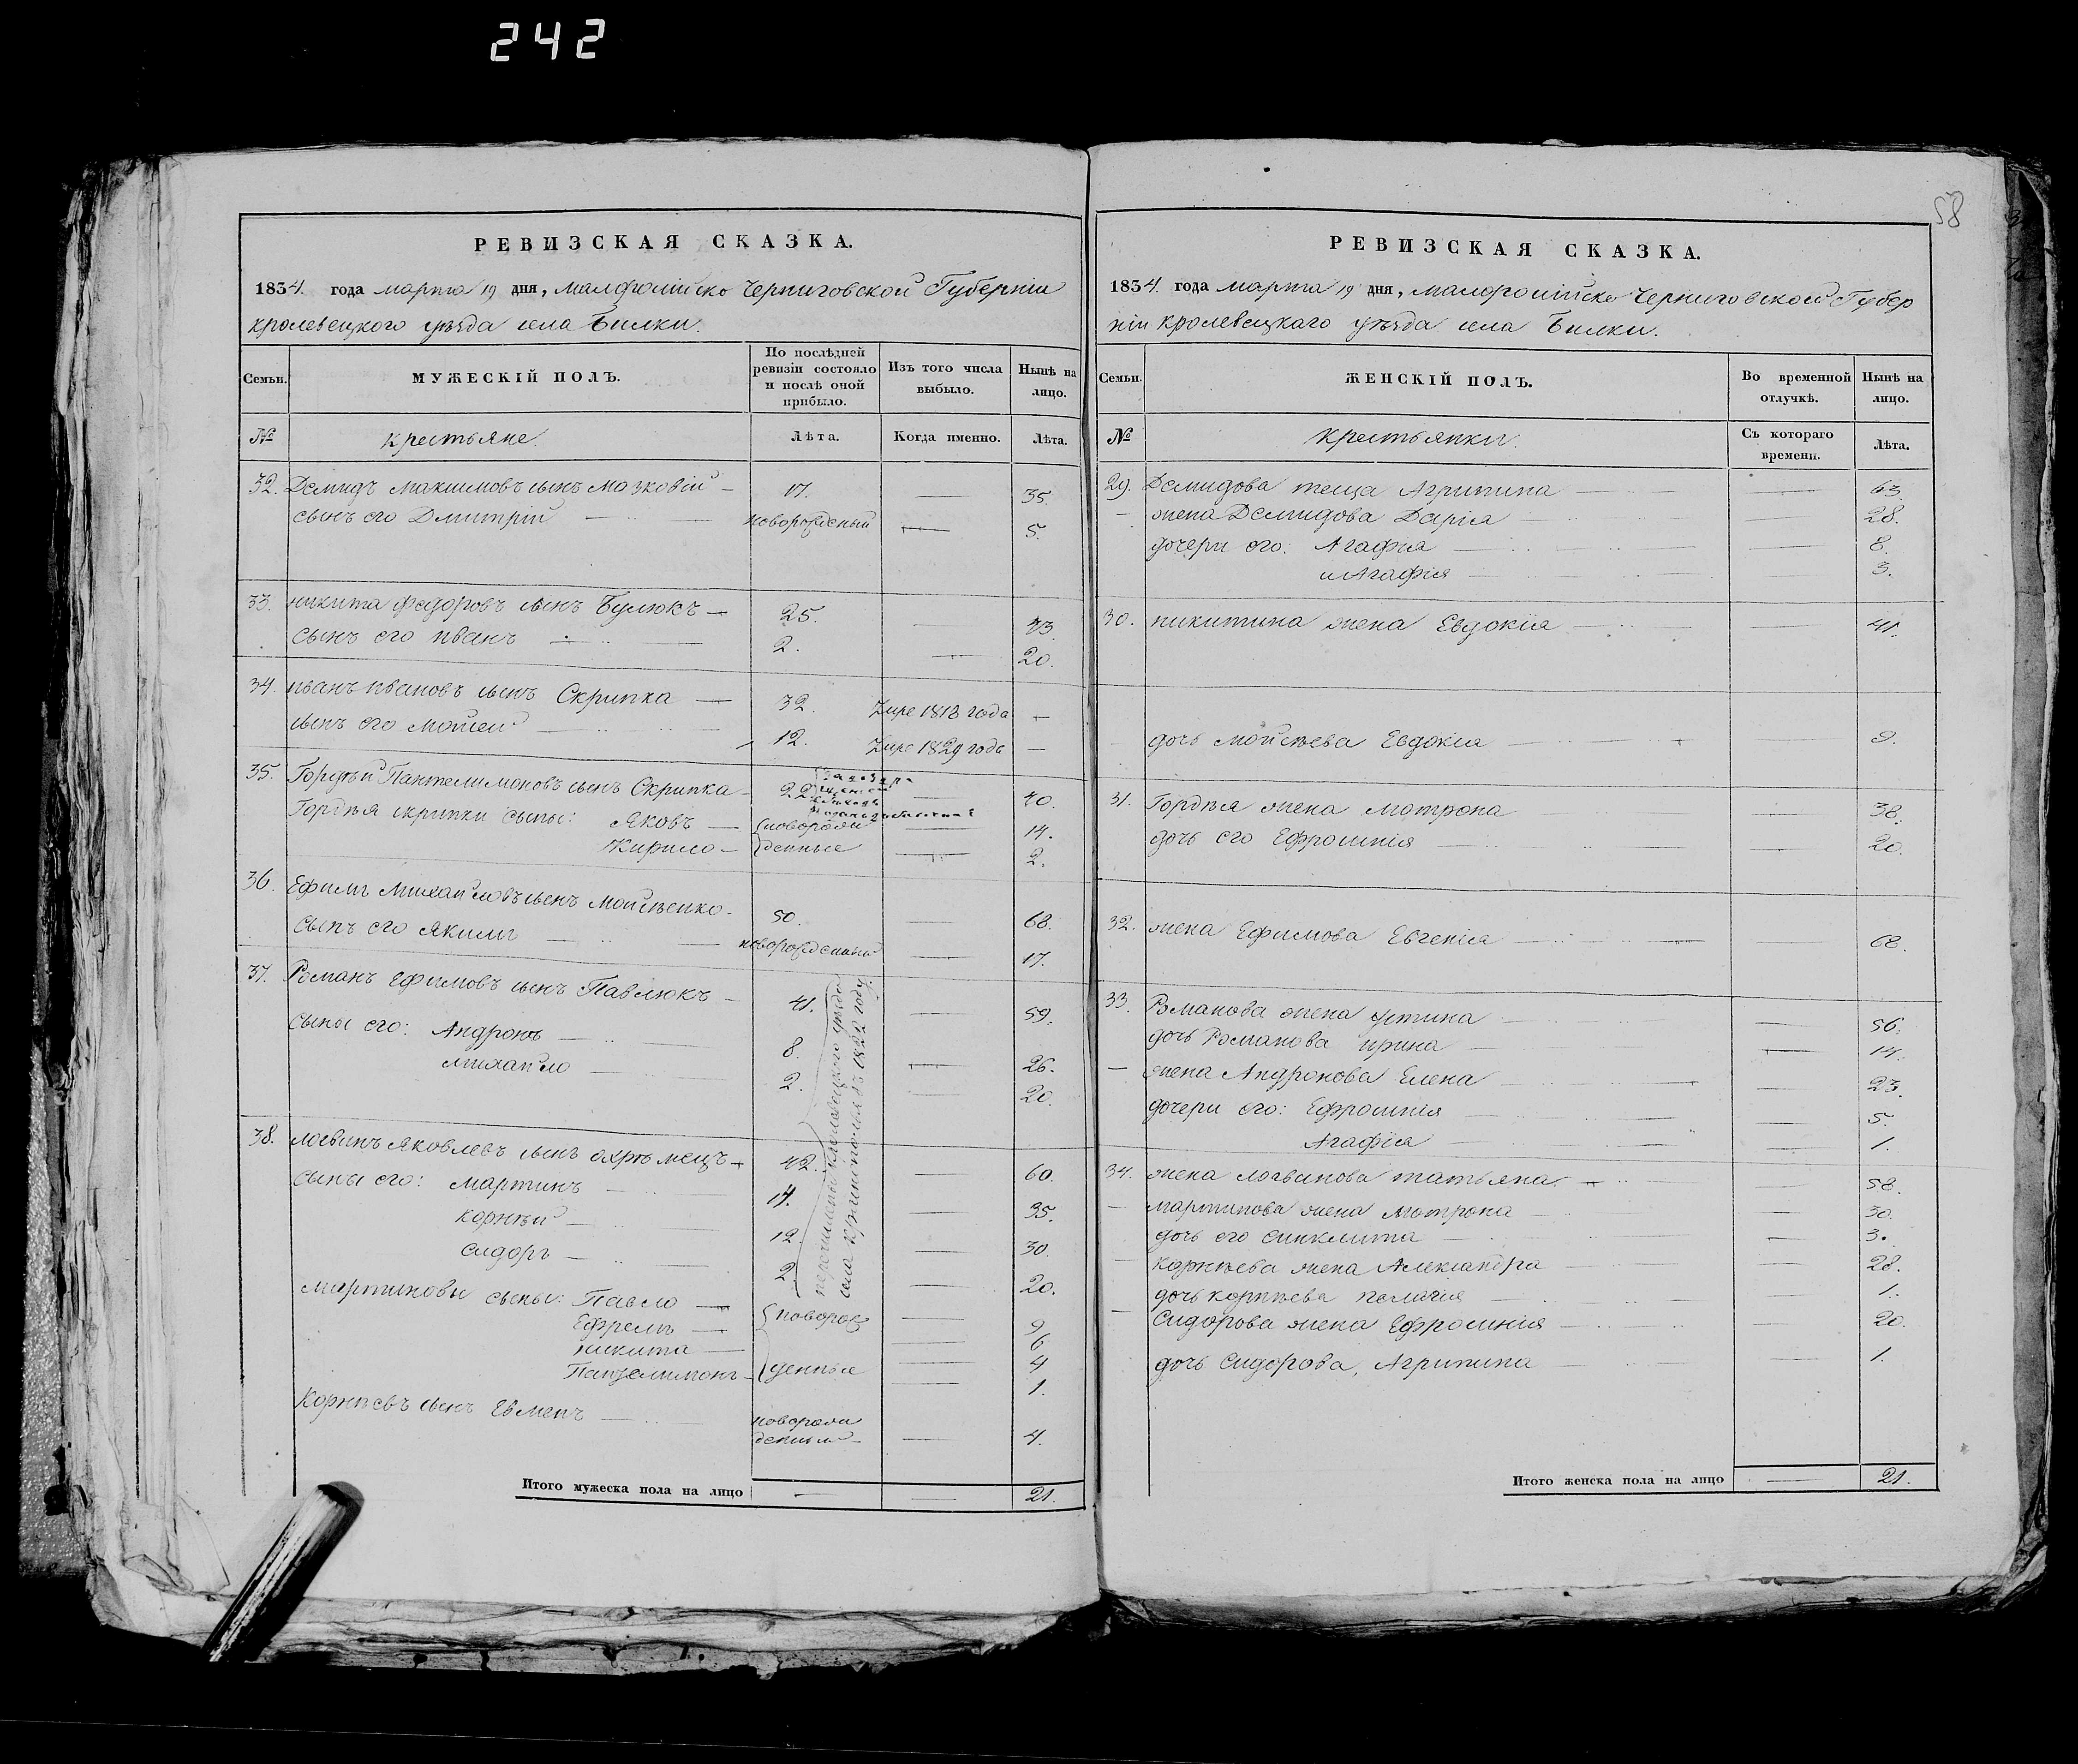 242
58
РЕВИЗСКАЯ СКАЗКА.
1834. года марта 19 дня, малоросійско Черниговской Губерніи
кролевецкого уезда села Билки.
Семьи. МУЖЕСКІЙ ПОЛЪ. По послѣдней ревизіи состояло и послѣ оной прибыло. Изъ того числа выбыло. Нынѣ на лицо.
№ крестьяне. Лѣта. Когда именно. Лѣта.
32. Демидъ максимовъ сынъ мазковій — 17. — 35.
сынъ его Дмитрій — новорожденый — 5.
33. никита федоровъ сынъ Булюкъ — 25. — 43.
сынъ его иванъ — 2. — 20.
34. иванъ ивановъ сынъ Скрипка — 32. 1818 года —
сынъ его мойсей — 12. 1829 года —
35. Гордѣй Пантелимоновъ сынъ Скрипка — 22 — 40.
Гордѣя скрипки сыны: Яковъ — новорож — 14.
Кирило — денные — 2.
36. Ефимъ Михайловъ сынъ мойсѣенко. 50. — 68.
сынъ его Якимъ — новорожденный — 17.
37. Романъ Ефимовъ сынъ Павлюкъ — 41. — 59.
сыны его: Андронъ — 8. — 26.
михайло — 2. — 20.
38. логвинъ Яковлевъ сынъ охрѣмецъ — 42. — 60.
сыны его: мартинъ — 17. — 35.
корнѣй — 12. — 30.
сидоръ — 2. — 20.
кролевецкого уезда
села в 1822 году
мартиновы сыны: Павло — новорож — 9
Ефремъ — 6
никита — 4
Панделимонъ — денные — 1.
Корнѣевъ сынъ Евменъ — новорож
денный — 4.
Итого мужеска пола на лицо — — 21.
РЕВИЗСКАЯ СКАЗКА.
1834. года марта 19 дня, малоросійско Черниговской Губер
ніи кролевецкаго уезда села Билки.
Семьи. ЖЕНСКІЙ ПОЛЪ. Во временной отлучкѣ. Нынѣ на лицо.
№ крестьянки. Съ котораго времени. Лѣта.
29. Демидова теща Агрипина — — 63.
— жена Демидова Дарія — 28.
дочери его: Агафія — — 8.
и Агафія — — 3.
30. никитина жена Евдокія — — 41.
дочь мойсѣева Евдокія — — 9.
31. Гордѣя жена мотрона — 38.
дочь его Ефросинія — — 20.
32. жена Ефимова Евгенія — — 68.
33. Романова жена устина — — 56.
дочь Романова ирина — — 14.
— жена Андронова Елена — — 23.
дочери его: Ефросинія — — 5.
Агафія — — 1.
34. жена логвинова татьяна — — 58.
— мартинова жена мотрона — — 30.
дочь его синклита — — 3.
— корнѣева жена Александра — — 28.
дочь корнѣева пелагія — — 1.
— Сидорова жена Ефросинія — — 20.
дочь Сидорова, Агрипина — — 1.
Итого женска пола на лицо — 21.